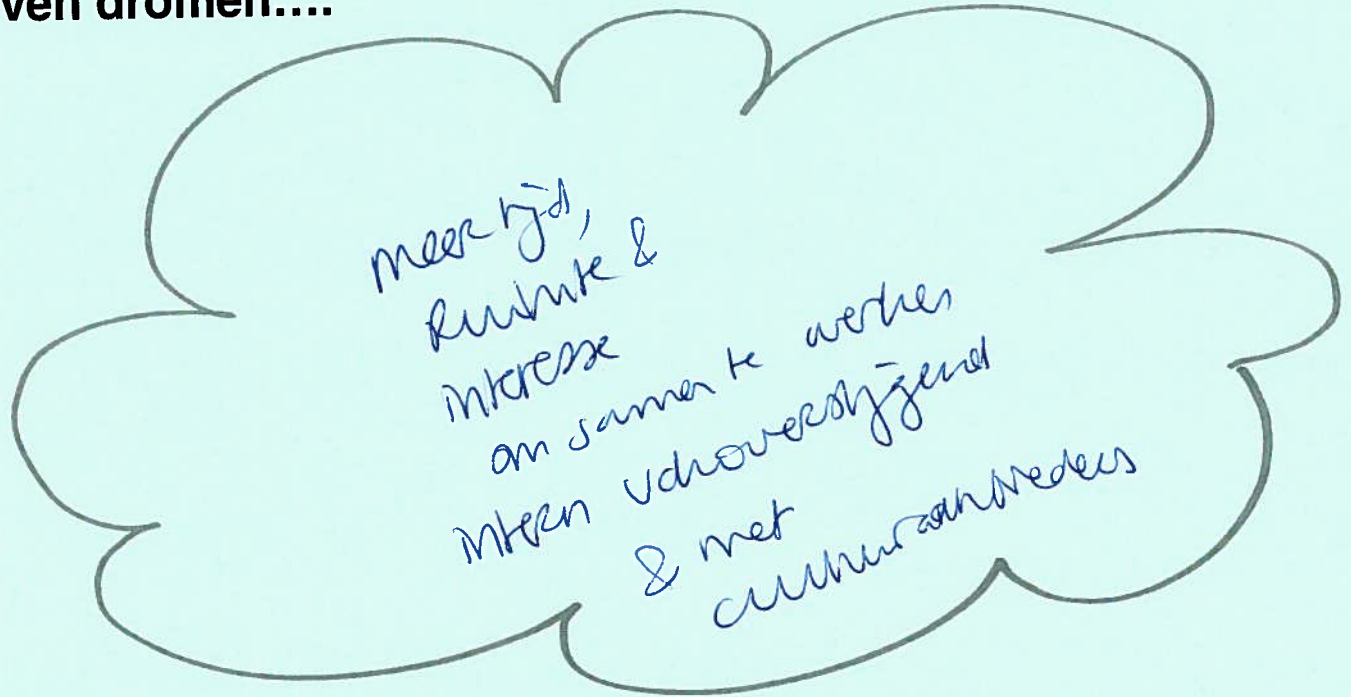 ven dromen....
meer tijd,
Ruimte &
interesse
om samen te werken
intern vakoverstijgend
& met
cultuuraanbieders